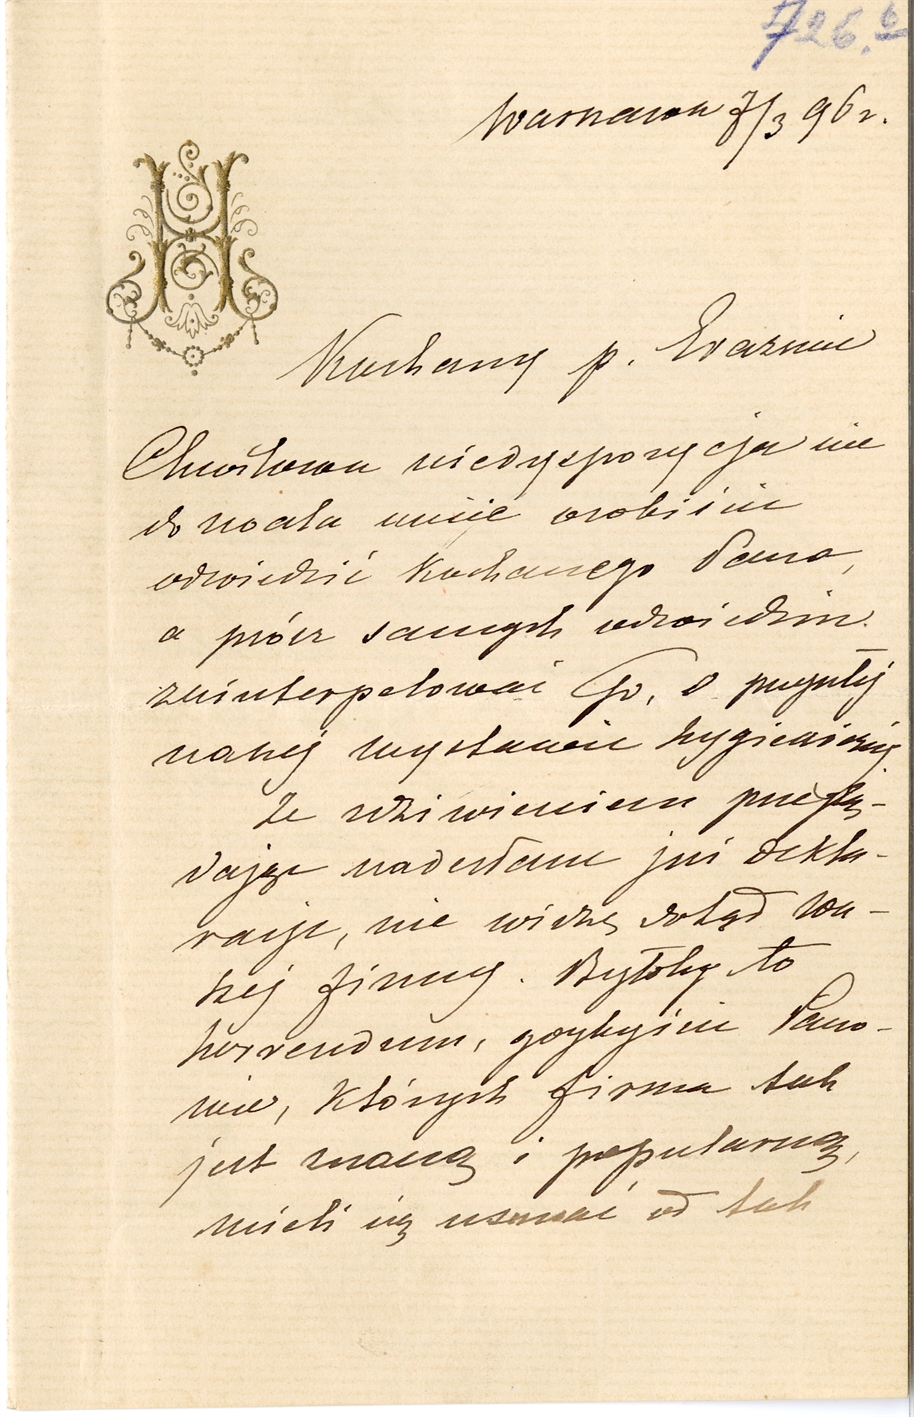 726.b
Warszawa 7/3 96 r.
H
Kochany p. Erazmie
Chwilowa niedyspozycja nie
dozwala mnie osobiście
odwiedzić kochanego Pana,
a prócz samych odwiedzin
zainterpelować Go, o przyszłej
naszej wystawie hygienicznej
Ze zdziwieniem przeglą-
dając nadesłane już dekla-
racje, nie widzę dotąd Wa-
szej firmy. Byłoby to
horrendum, gdybyście Pano-
wie, których firma tak
jest znaną i popularną,
mieli się usuwać od tak